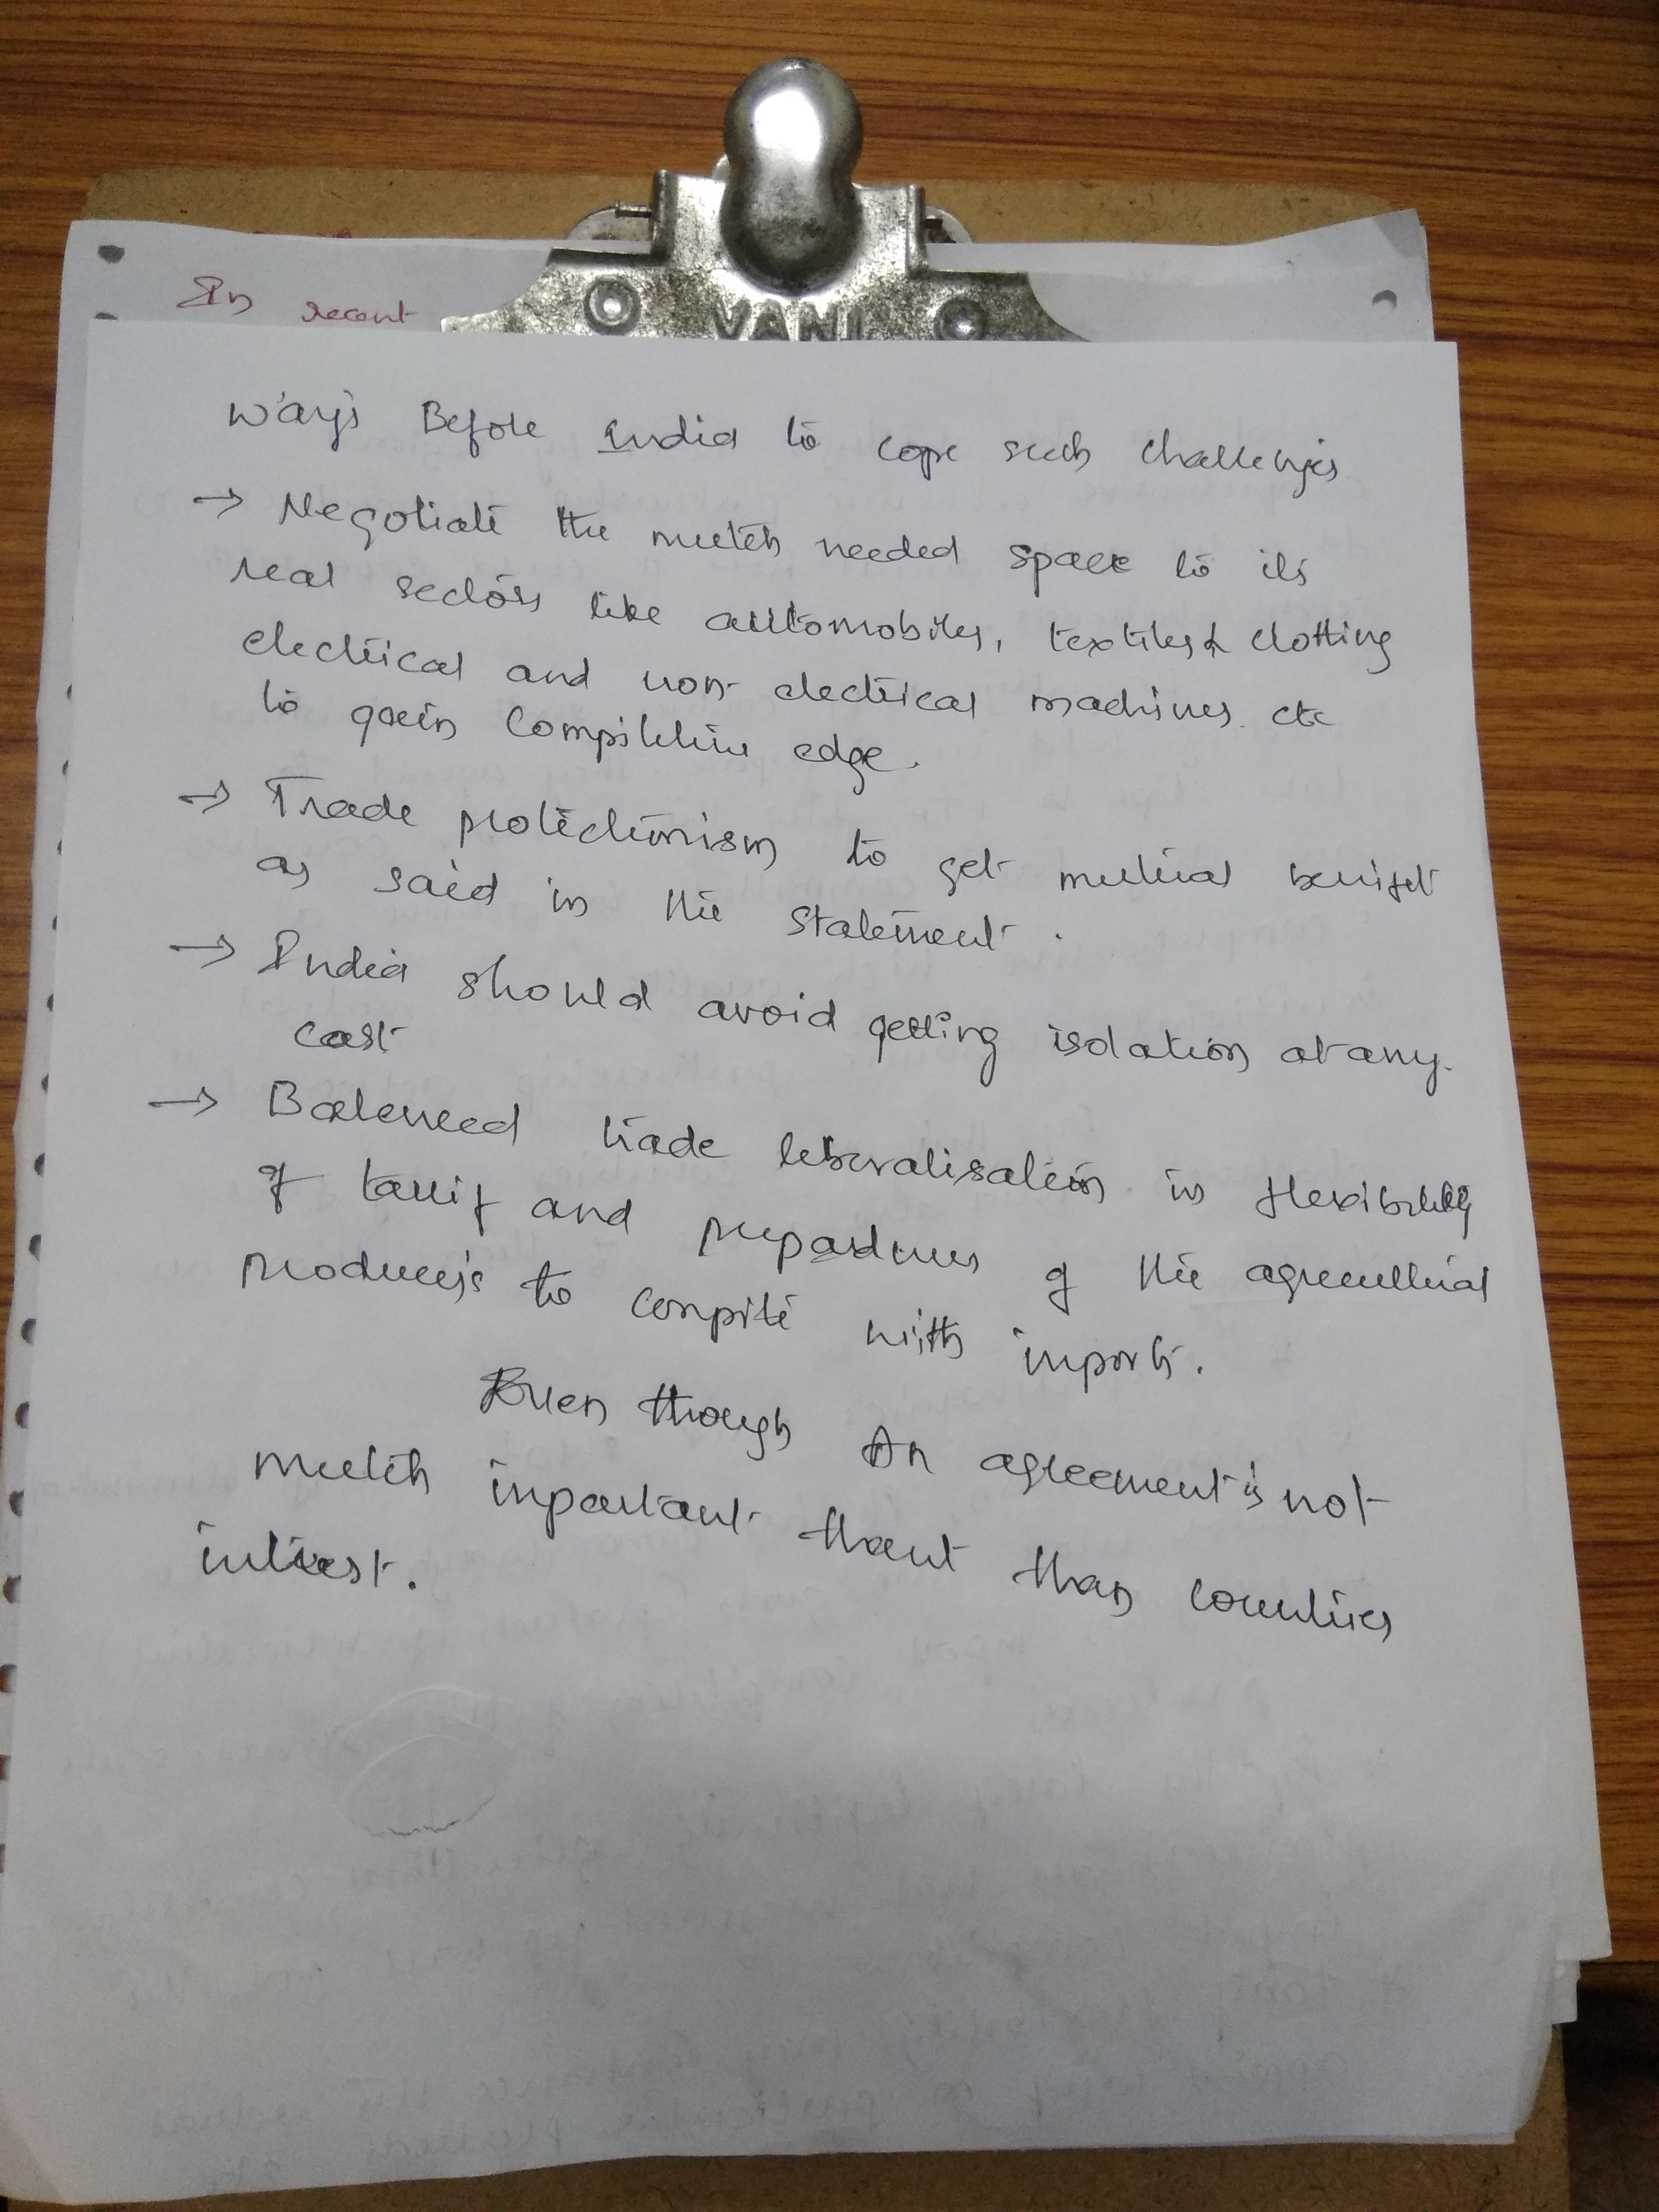 In recent
VANI
Ways Before India to cope such challenges
→ Negotiate the much needed space to its
real sectors like automobiles, textiles & clotting
electrical and non-electrical machines. etc
to gain Compititive edge.
→ Trade protectionism to get mutual benifit
as said in the statement.
→ India should avoid getting isolation at any.
cost
→ Balenced trade leberalisation in flexibility
of tarrif and prepardness of the agricultural
producers to compite with imports.
Even though An agreement is not
much inportant than countries
intrest.